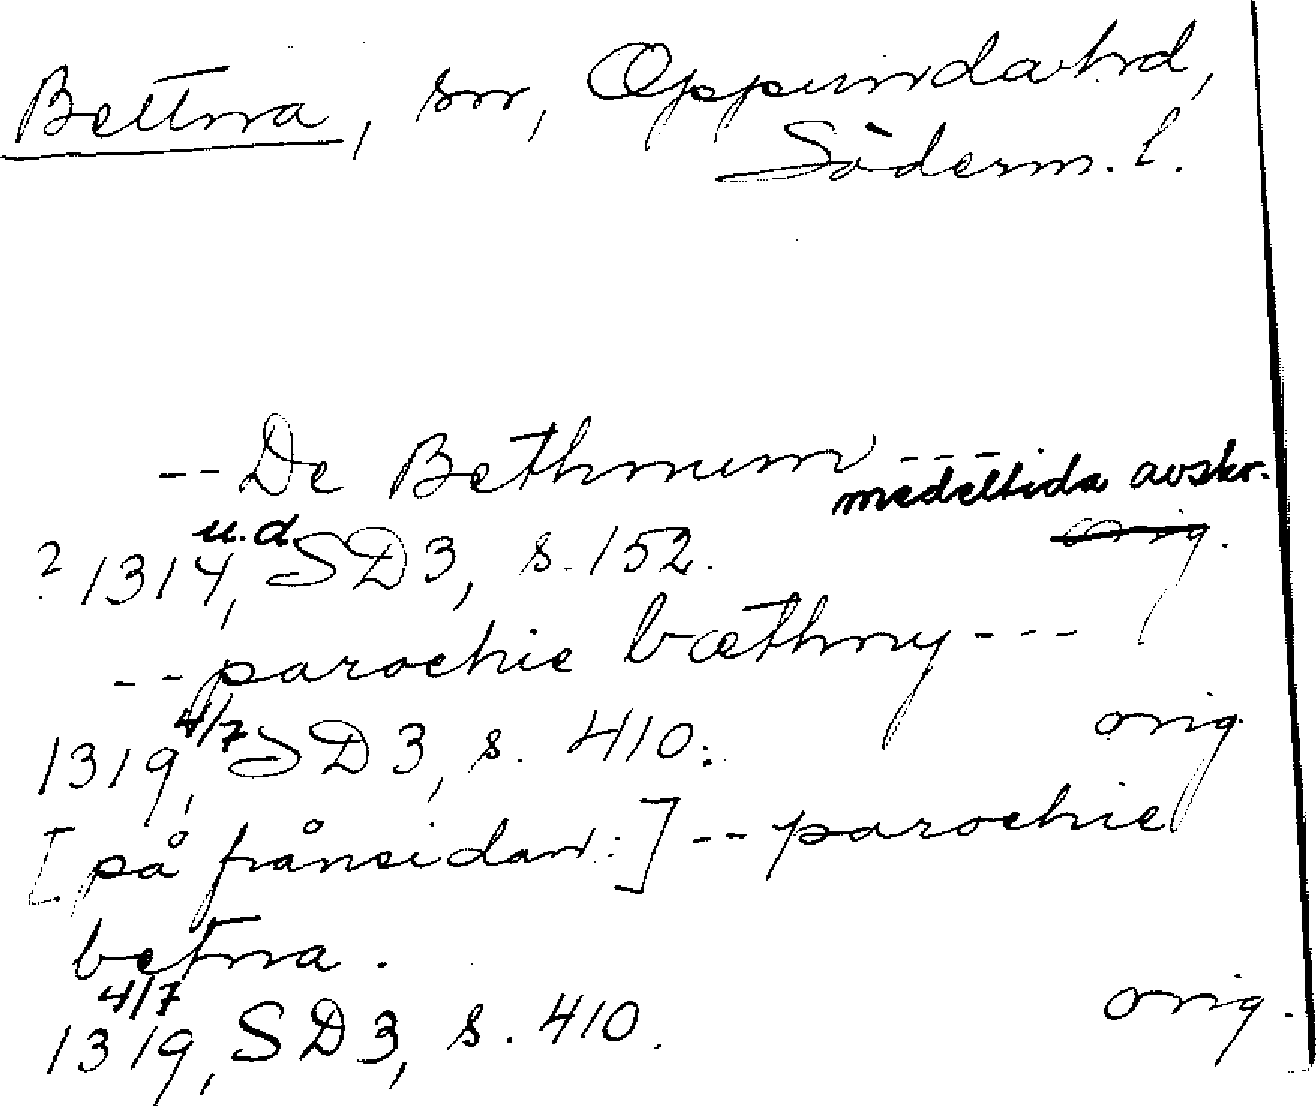 Bettna, sn, Oppunda hd,
Söderm. l.
-- De Bethnum ---
medeltida avskr.
? 1314, u.d. SD 3, s. 152. orig.
-- parochie bæthny ---
1319, 4/7 SD 3, s. 410. orig
[på frånsidan:] -- parochie
betna.
1319, 4/7 SD 3, s. 410. orig.